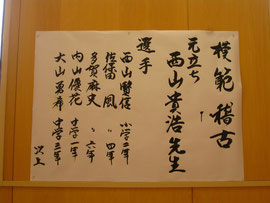 模範稽古
元立ち
西山貴浩先生
選手
西山賢信 小学二年
風 〃 四年
多賀麻史 〃 六年
内山優花 中学一年
大山勇希 中学三年
以上